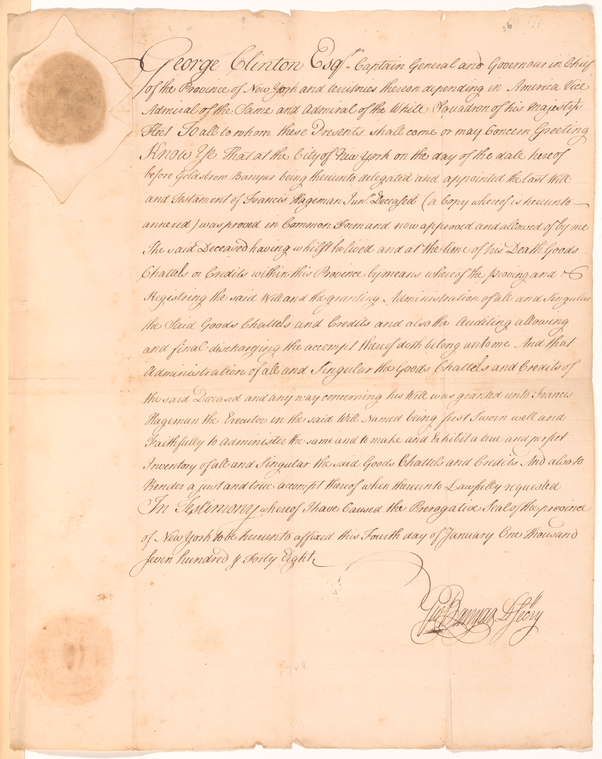 36
George Clinton Esqr. Captain General and Governour in Chief
of the Province of New York and territories thereon depending in America Vice
Admiral of the Same and Admiral of the White Squadron of his Majestys
Fleet To all to whom these Presents shall come or may Concern Greeting
Know Ye That at the City of New York on the day of the date hereof
before Goldsbrow Banyar being thereunto delegated and appointed the Last Will
and Testament of Francis Hageman Junr. Deceased (a Copy whereof is hereunto
annexed) was proved in Common Form and now approved and allowed of by me
The said Deceased having whilst he lived and at the time of his Death Goods
Chattels or Credits within this Province by means whereof the proving and
Registring the said Will and the granting Administration of all and Singular
the said Goods Chattels and Credits and also the Auditing allowing
and final discharging the accompt thereof doth belong unto me And that
Administration of all and Singular the Goods Chattels and Credits of
the said Deceased and any way concerning his Will was granted unto Francis
Hageman the Executor in the said Will Named being first Sworn well and
Faithfully to Administer the same and to make and exhibit a true and perfect
Inventory of all and Singular the said Goods Chattels and Credits And also to
Render a just and true accompt thereof when thereunto Lawfully requested
In Testimony whereof I have Caused the Prerogative Seal of the province
of New York to be hereunto affixed this Fourth day of January One Thousand
Seven hundred & Forty Eight
Gw. Banyar D Secry
1748